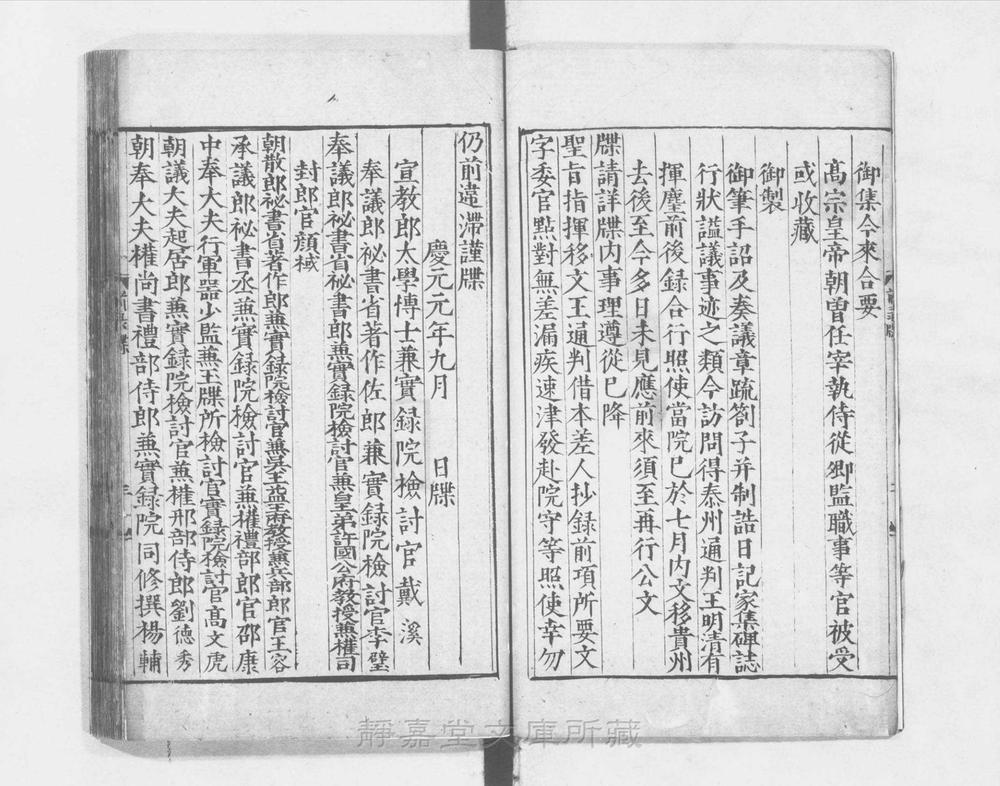 御集今來合要
髙宗皇帝朝曽任宰執侍從卿監職事等官被受
或收藏
御製
御筆手詔及奏議章疏劄子并制誥日記家集碑誌
行狀諡議事迹之類今訪問得泰州通判王明清有
揮麈前後録合行照使當院已於七月内文移貴州
去後至今多日未見應前來須至再行公文
牒請詳牒内事理遵從已降
聖旨指揮移文王通判借本差人抄録前項所要文
字委官點對無差漏疾速津發赴院守等照使幸勿
仍前違滯謹牒
慶元元年九月 日牒
宣教郎太學博士兼實録院檢討官戴溪
奉議郎祕書省著作佐郎兼實録院檢討官李璧
奉議郎祕書省祕書郎兼實録院檢討官兼皇弟許國公府教授兼權司
封郎官顔棫
朝散郎祕書省著作郎兼實録院檢討官兼吳王益王府教授兼兵部郎官王容
承議郎祕書丞兼實録院檢討官兼權禮部郎官邵康
中奉大夫行軍器少監兼玉牒所檢討官實録院檢討官髙文虎
朝議大夫起居郎兼實録院檢討官兼權刑部侍郎劉德秀
朝奉大夫權尚書禮部侍郎兼實録院同修撰楊輔
靜嘉堂文庫所藏